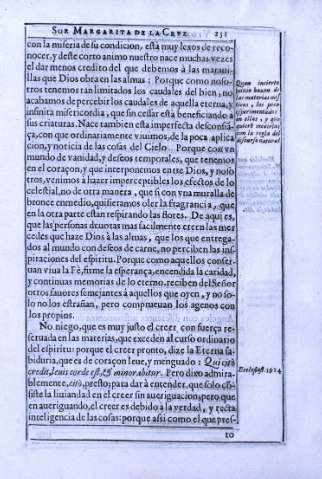 SOR MARGARITA DE LA CRVZ. 231
con la miseria de su condicion, està muy lexos de reco-
nocer, y deste corto animo nuestro nace muchas vezes
el dar menos credito del que debemos à las maraui-
llas que Dios obra en las almas: Porque como noso-
tros tenemos tan limitados los caudales del bien, no
acabamos de percebir los caudales de aquella eterna, y
infinita misericordia, que sin cessar està beneficiando à
sus criaturas. Nace tambien esta imperfecta desconfiã-
ça, con que ordinariamente viuimos, de la poca aplica-
cion, y noticia de las cosas del Cielo. Porque con vn
mundo de vanidad, y deseos temporales, que tenemos
en el coraçon, y que interponemos entre Dios, y noso-
tros, venimos à hazer imperceptibles los efectos de lo
celestial, no de otra manera, que si con vna muralla de
bronce enmedio, quisieramos oler la fragrancia, que
en la otra parte estan respirando las flores. De aqui es,
que las personas deuotas mas facilmente creen las mer
cedes que haze Dios à las almas, que los que entrega-
dos al mundo con deseos de carne, no perciben las ins-
piraciones del espiritu. Porque como aquellos conser-
uan viua la Fè, firme la esperança, encendida la caridad,
y continuas memorias de lo eterno, reciben del Señor
otros fauores semejantes à aquellos que oyen, y no so-
lo no los estrañan, pero comprueuan los agenos con
los propios.
No niego, que es muy justo el creer con fuerça re-
seruada en las materias, que exceden al curso ordinario
del espiritu: porque el creer pronto, dize la Eterna sa-
biduria, que es de coraçon leue, y menguado: Qui citò
credit, leuis corde est, & minorabitur. Pero dixo admira-
blemente, citò, presto; para dar à entender, que solo cõ-
siste la liuiandad en el creer sin aueriguacion; pero que
en aueriguando, el creer es debido à la verdad, y recta
inteligencia de las cosas: porque assi como el que pres-
to
Quan incierto
juizio hazen de
las materias mis
ticas, los poco
experimentados
en ellas, y que
quieren medirlas
con la regla del
discurso natural
Ecclesiast. 19. 4